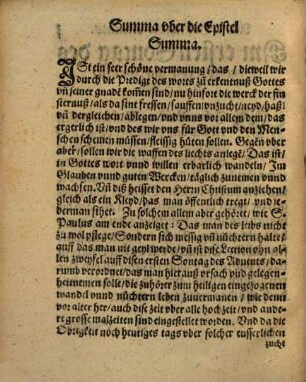 Summa vber die Epistel
Summa.
ISt ein seer schöne vermanung / das / dieweil wir
durch die Predige des worts zu erkentnuß Gottes
vñ seiner gnadē komen sind / nu hinfort die werck der fin
sternuß / als da sint fressen / sauffen / vnzucht / neyd / haß /
vñ dergleichen / ablegen / vnd vnns vor allem dem / das
ergerlich ist / vnd des wir vns für Gott vnd den Men-
schen schemen müssen / fleissig hüten sollen. Gegen vber
aber / sollen wir die waffen des liechts anlegē / Das ist /
in Gottes wort vnnd willen erbarlich wandeln / Im
Glauben vnnd guten Wercken / täglich zunemen vnnd
wachsen. Vñ diß heisset den Herrn Christum anziehen /
gleich als ein Kleyd / das man öffentlich tregt / vnd je-
derman sihet. Zu solchem allem aber gehört / wie S.
Paulus am ende anzeiget / Das man des leibs nicht
zu wol pflege / Sondern sich messig vñ nüchtern halte /
auff das man nit geyl werde / vñ ist dise Lection ohn al
len zweyfel auff disen ersten Sontag des Aduents / da-
rumb verordnet / das man hierauß vrsach vnd gelegen-
heit nemen solle / die zuhörer zum heiligen eingezogenen
wandel vnnd nüchtern leben zuuermanen / wie denn
vor alter her / auch dise zeit vber alle hochzeit / vnd ande-
re grosse malzeiten sind eingestellet worden. Vnd da die
Obrigkeit noch heutiges tags vber solcher eusserlichen
zucht